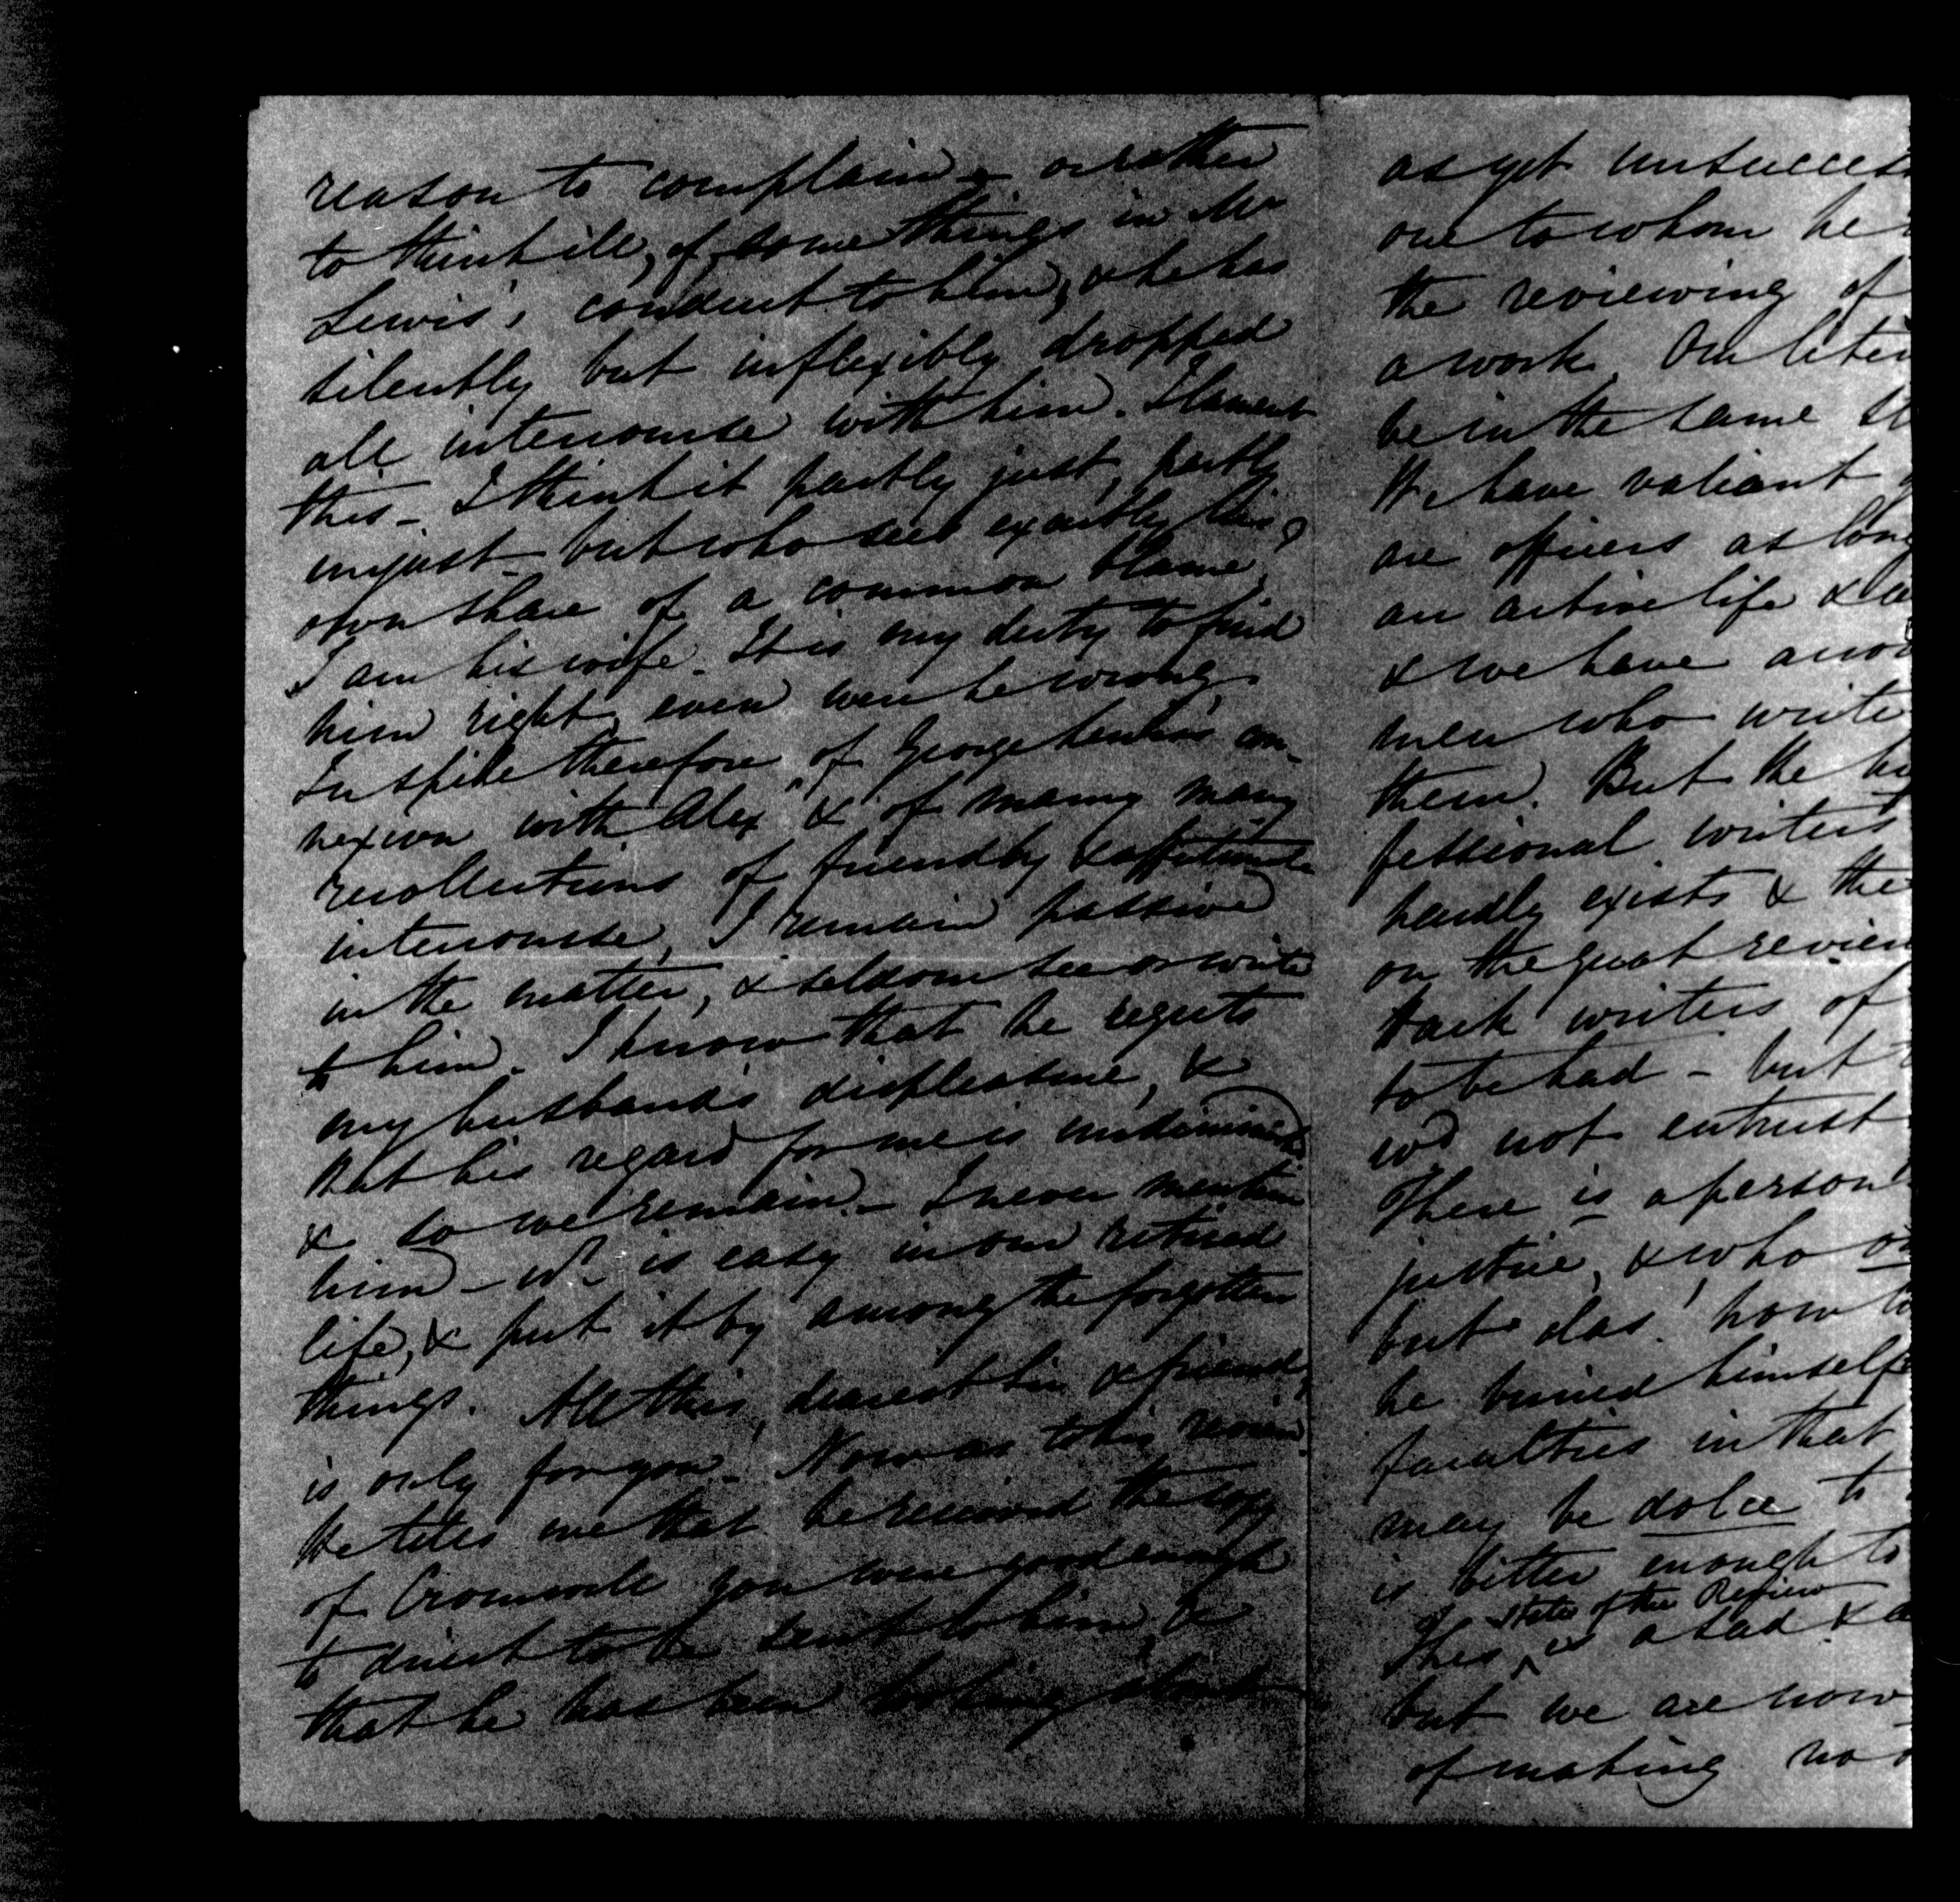 reason to complain – or rather
to think ill, of some things in Mr
Lewis's conduct to him, & he has
silently but inflexibly dropped
all intercourse with him. I lament
this – I think it partly just, partly
unjust – but who sees exactly his
own share of a common blame,
I am his wife. It is my duty to find
him right, even were he wrong.
In spite therefore of George Lewis's con-
nexion with Alexr & of many many
recollections of friendly & affectionate
intercourse, I remain passive
in the matter, & seldom see or write
to him. I know that he regrets
my husband's displeasure, &
that his regard for me is undiminished
& so we remain – I never mention
him – wh is easy in our retired
life, & put it by among the forgotten
things. All this, dearest Sir & friend,
is only for you. Now as to his review.
He tells me that he received the copy
of Cromwell you were good enough
to direct to be sent to him, &
that he has been looking about
as yet unsuccess
one to whom he
the reviewing of
a work. Our liter
be in the same st
We have valiant
are officers as long
an active life & a
& we have
men who write
them. But the
fessional writers
hardly exists & the
on the great review
Hack writers of
to be had – but
wd not entrust
There is a person
justice, & who
but alas! how
he buried himself
faculties in that
may be dolce to
is bitter enough to
state of the Review
This is a sad &
but we are now
of making no